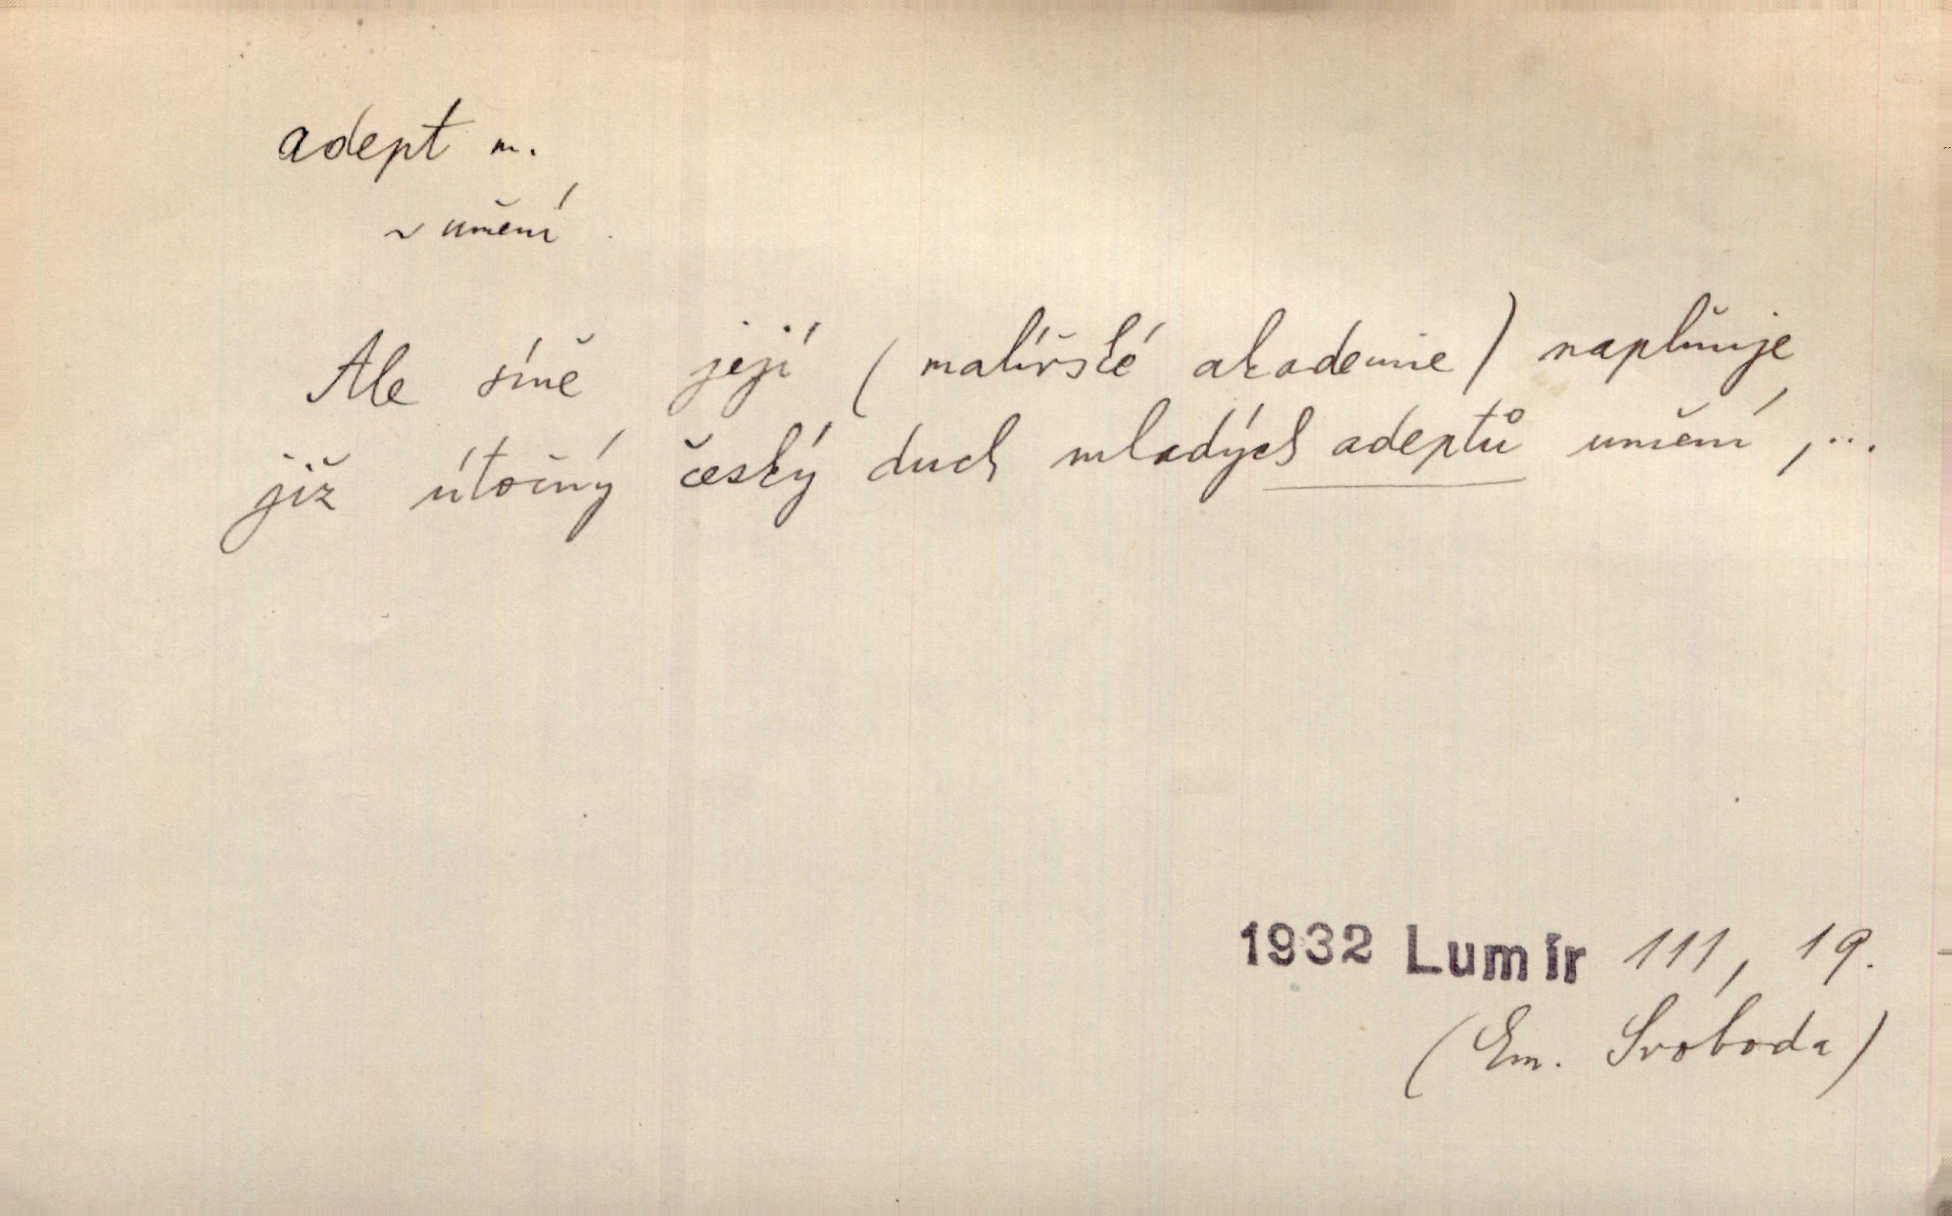 adept m.
~ umění
Ale síně její (malířské akademie) naplňuje
již útočný český duch mladých adeptů umění, ...
1932 Lumír 111, 19.
(Em. Svoboda)